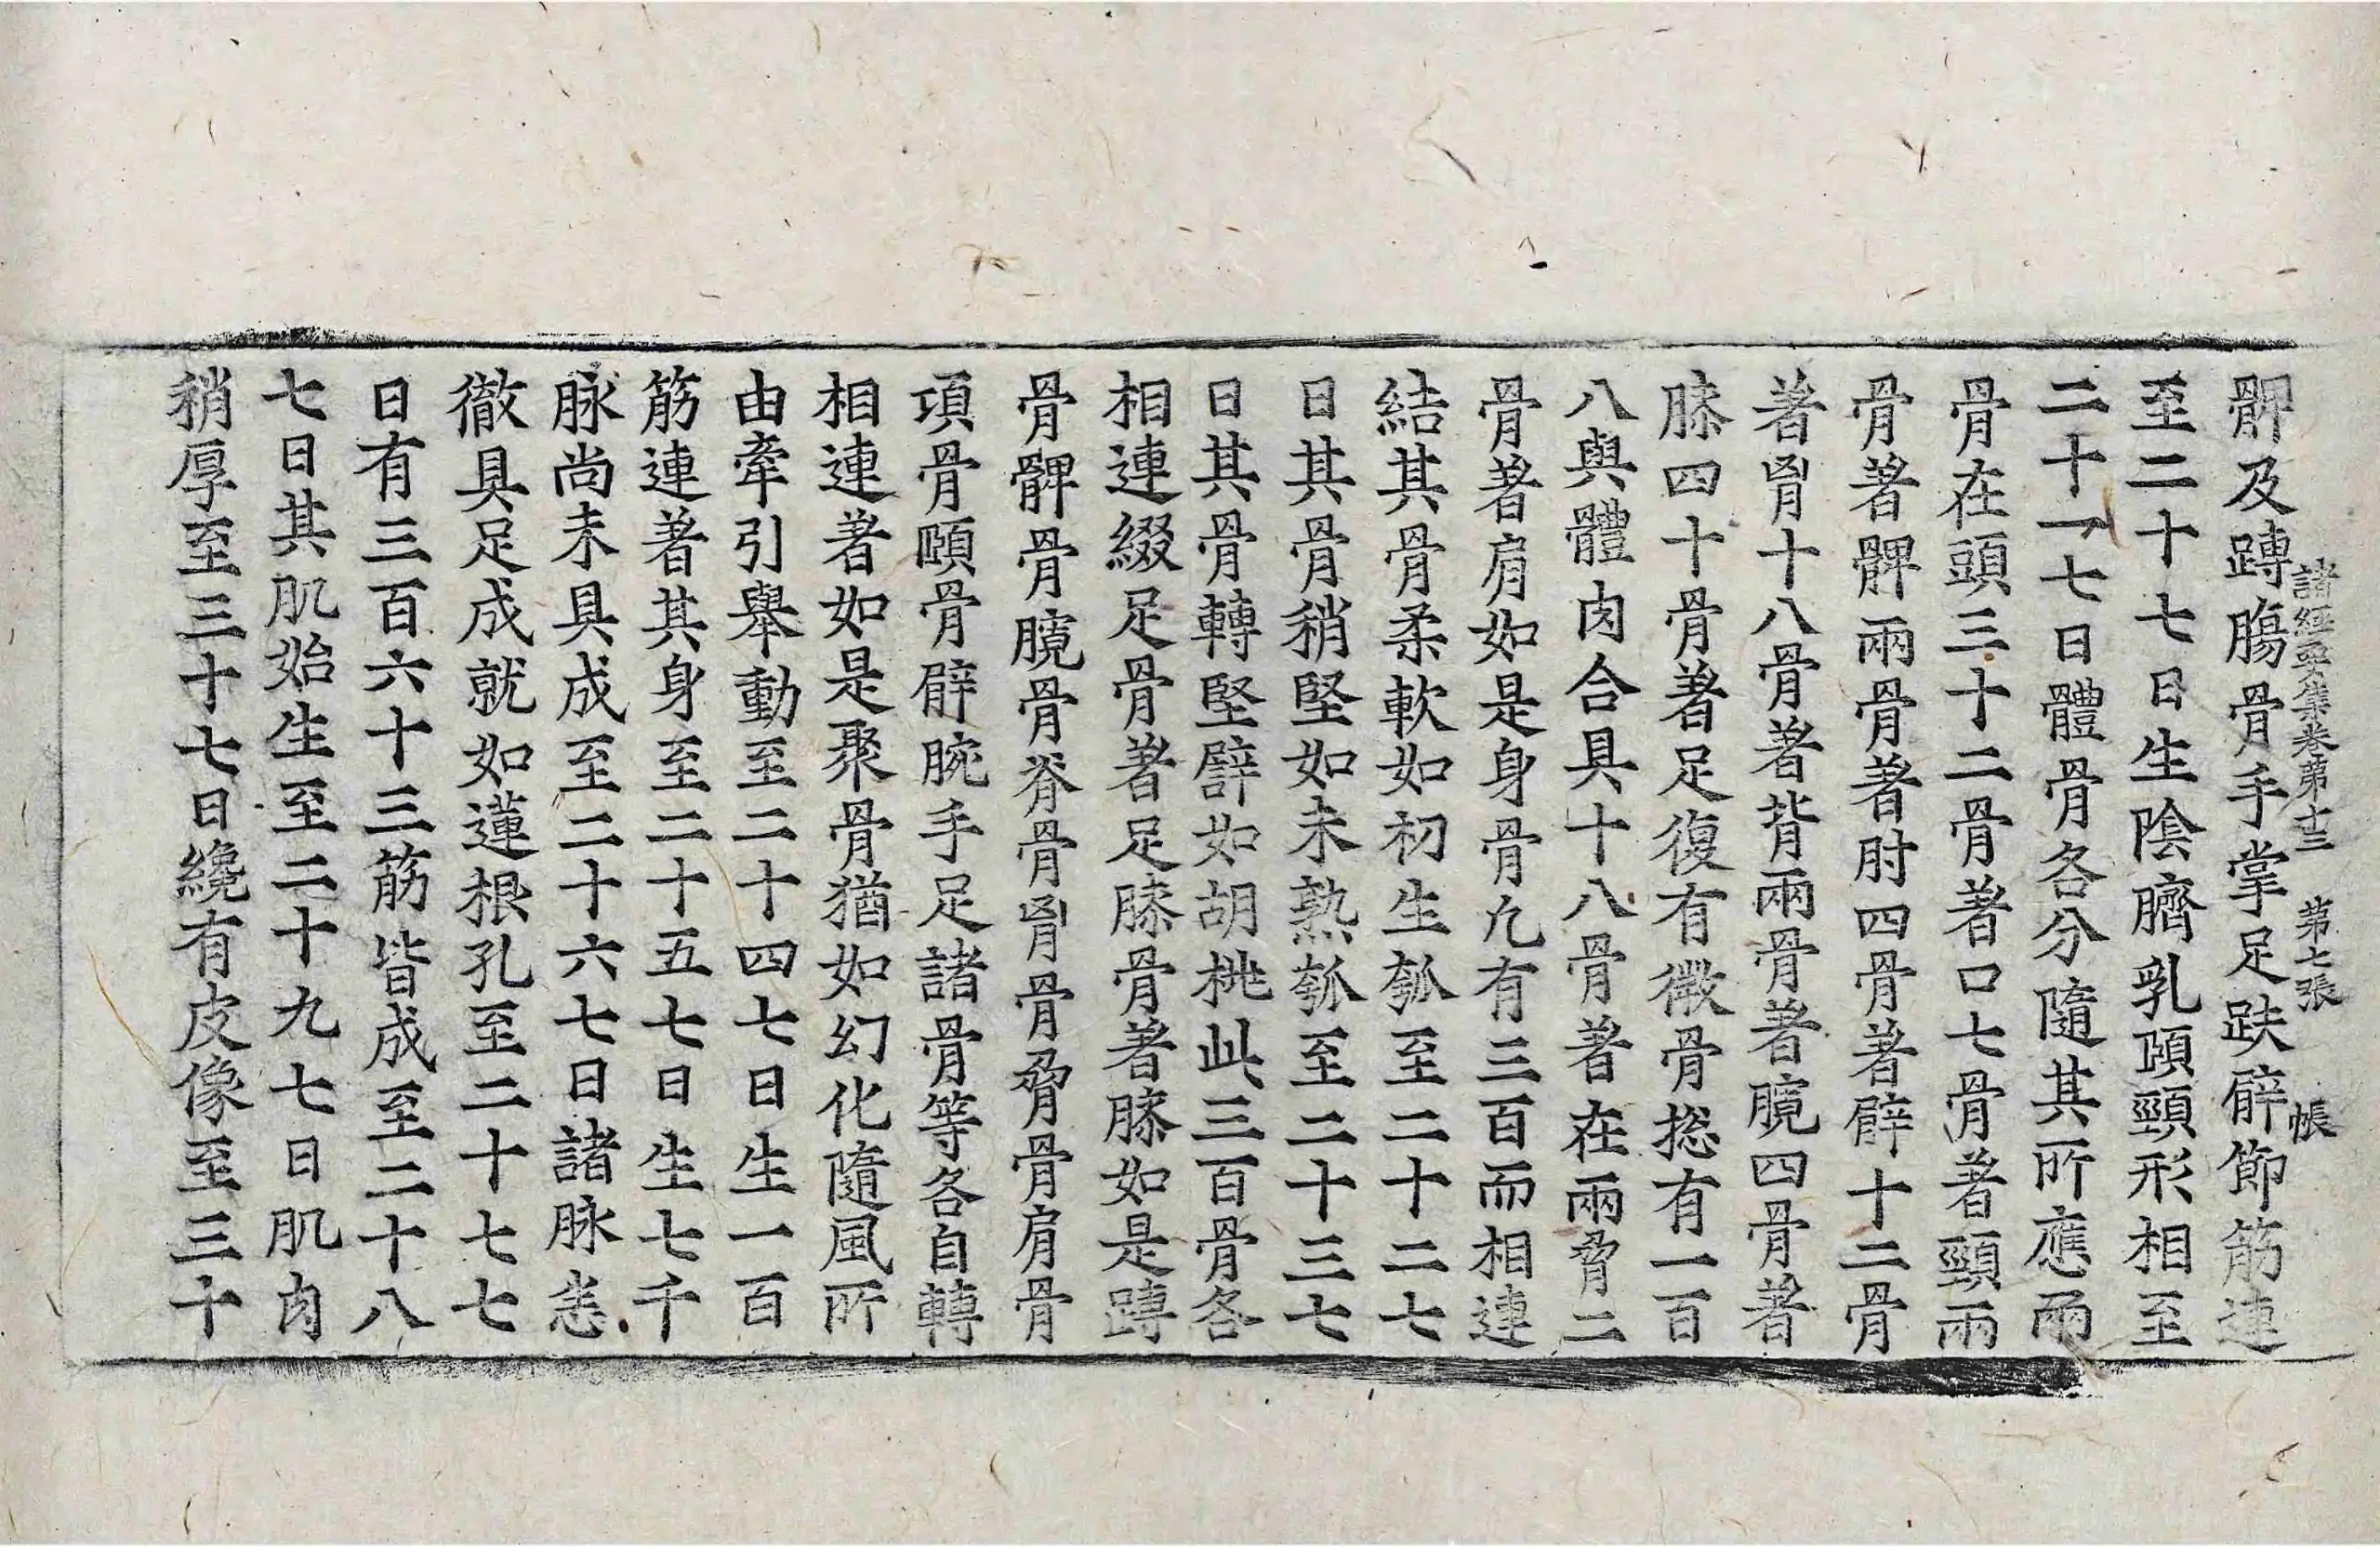 諸經要集卷第十二　第七張　帳
髀及䏝腸骨手掌足趺臂節筋連
至二十七日生陰臍乳頤頸形相至
二十一七日體骨各分隨其所應兩
骨在頭三十二骨著口七骨著頸兩
骨著髀兩骨著肘四骨著臂十二骨
著胷十八骨著背兩骨著臗四骨著
膝四十骨著足復有微骨揔有一百
八與體肉合具十八骨著在兩脅二
骨著肩如是身骨凢有三百而相連
結其骨柔軟如初生瓠至二十二七
日其骨稍堅如未熟瓠至二十三七
日其骨轉堅譬如胡桃此三百骨各
相連綴足骨著足膝骨著膝如是䏝
骨髀骨臗骨脊骨胷骨脅骨肩骨
項骨頤骨臂腕手足諸骨等各自轉
相連著如是聚骨猶如幻化隨風所
由牽引舉動至二十四七日生一百
筋連著其身至二十五七日生七千
脉尚未具成至二十六七日諸脉悉
徹具足成就如蓮根孔至二十七七
日有三百六十三筋皆成至二十八
七日其肌始生至二十九七日肌肉
稍厚至三十七日纔有皮像至三十